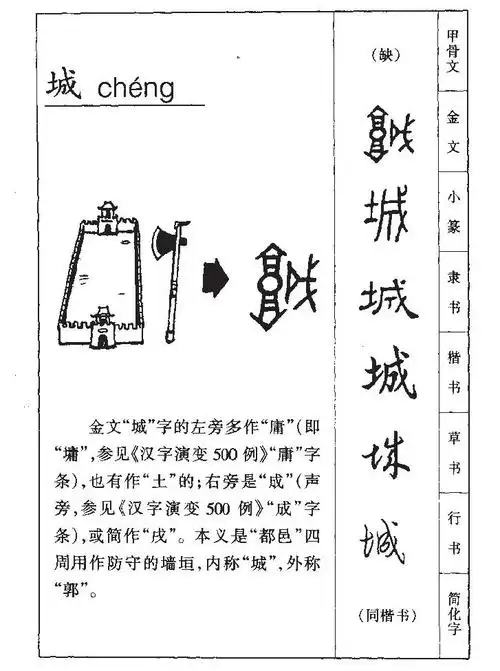 城 chéng
金文“城”字的左旁多作“庸”(即
“墉”,参见《汉字演变 500 例》“庸”字
条),也有作“土”的;右旁是“成”(声
旁,参见《汉字演变 500 例》“成”字
条),或简作“戌”。本义是“都邑”四
周用作防守的墙垣,内称“城”,外称
“郭”。
(缺) 甲骨文
城 金文
城 小篆
城 隶书
城 楷书
城 草书
城 行书
(同楷书) 简化字